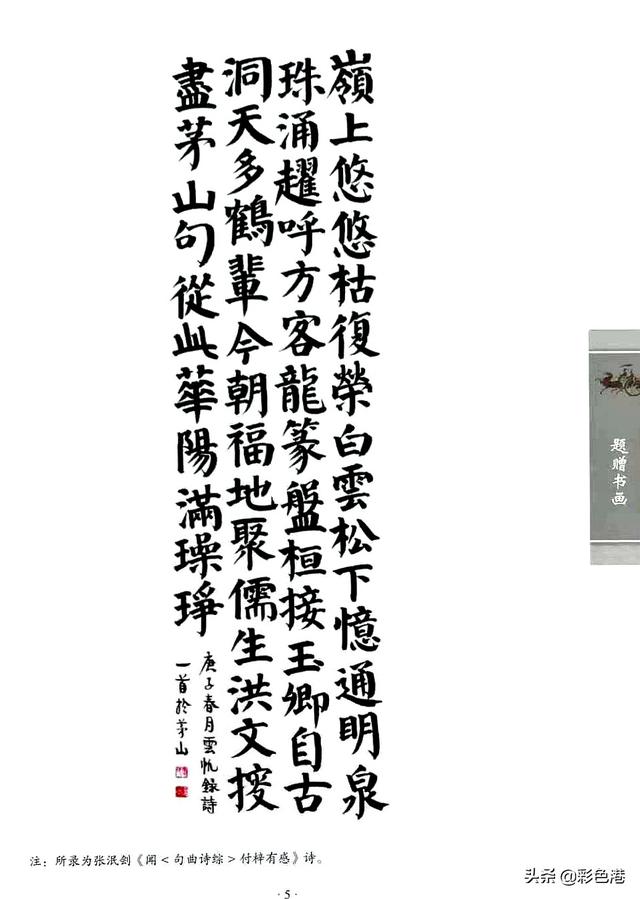 嶺上悠悠枯復榮白雲松下憶通明泉
珠涌趯呼方客龍篆盤桓接玉卿自古
洞天多鶴輩今朝福地聚儒生洪文搜
盡茅山句從此華陽滿璪琤
庚子春月雲帆錄詩
一首於茅山
题赠书画
注：所录为张泯剑《闻<句曲诗综>付梓有感》诗。
·5·
头条@彩色港